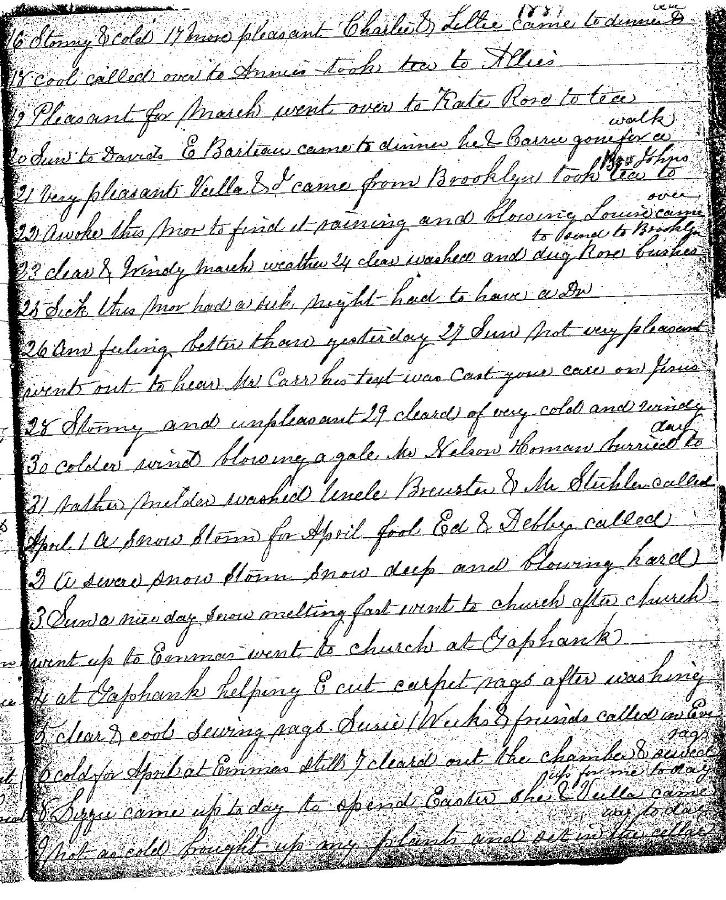 1887
16 Stormy & cold 17 more pleasant Charlie & Lettie came to dinner &
tea
18 cool called over to Annies took tea to Allies
19 Pleasant for March went over to Kate Rose to tea
20 Sun to Davids E Barteau came to dinner he & Carrie gone for a
walk
21 Very pleasant Vella & I came from Brooklyn took tea to
Bro Johns
22 Awoke this mor to find it raining and blowing Louise came
over
23 clear & Windy March weather 24 clear washed and dug Rose bushes
to send to Brooklyn
25 Sick this mor had a sick night had to have a Dr
26 Am feeling better than yesterday 27 Sun not very pleasant
went out to hear Mr Carr his text was Cast your care on Jesus
28 Stormy and unpleasant 29 cleard of very cold and windy
30 colder wind blowing a gale Mr Nelson Homan burried to
day
31 rather milder washed Uncle Brewster & Mr called
April 1 A snow storm for April fool Ed & Debby called
2 A severe snow storm snow deep and blowing hard
3 Sun a nice day snow melting fast went to church after church
went up to Emmas went to church at Yaphank
4 at Yaphank helping E cut carpet rags after washing
5 clear & cool sewing rags Susie Weeks & friends called in Eve
6 cold for April at Emmas still 7 cleard out the chamber & sewed
rags
8 Lizzie came up to day to spend Easter she & Vella came
up for me to day
9 not as cold bought up my plants and set in the cellar
way to day